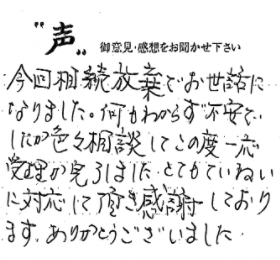 "声"
御意見・感想をお聞かせ下さい
今回相続放棄でお世話に
なりました。何もわからず不安で
したが色々相談してこの度一応
受理が完了しました。とてもていねい
に対応して頂き感謝しており
ます。ありがとうございました。